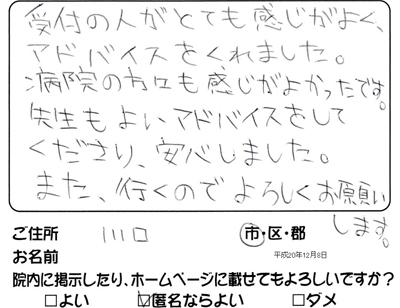 受付の人がとても感じがよく、
アドバイスをくれました。
病院の方も感じがよかったです。
先生もよいアドバイスをして
くださり、安心しました。
また、行くのでよろしくお願い
します。
ご住所 川口 市・区・郡
お名前 平成20年12月8日
院内に掲示したり、ホームページに載せてもよろしいですか？
□よい ☑匿名ならよい □ダメ